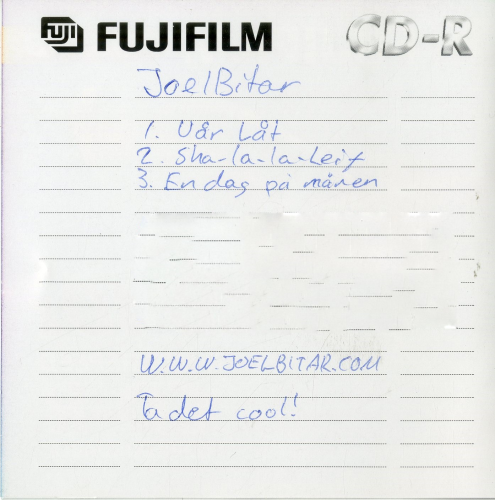 FUJI FUJIFILM CD-R
JoelBitar
1. Vår Låt
2. Sha-la-la-Leif
3. En dag på månen
W.W.W.JOELBITAR.COM
Ta det cool!